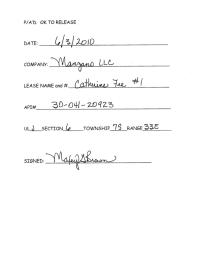 P/A'D. OK TO RELEASE
DATE: 6/3/2010
COMPANY: Manzano LLC
LEASE NAME and #. Catherine Fee #1
API# 30-041-20923
UL J SECTION 6 TOWNSHIP 7S RANGE 33E
SIGNED: